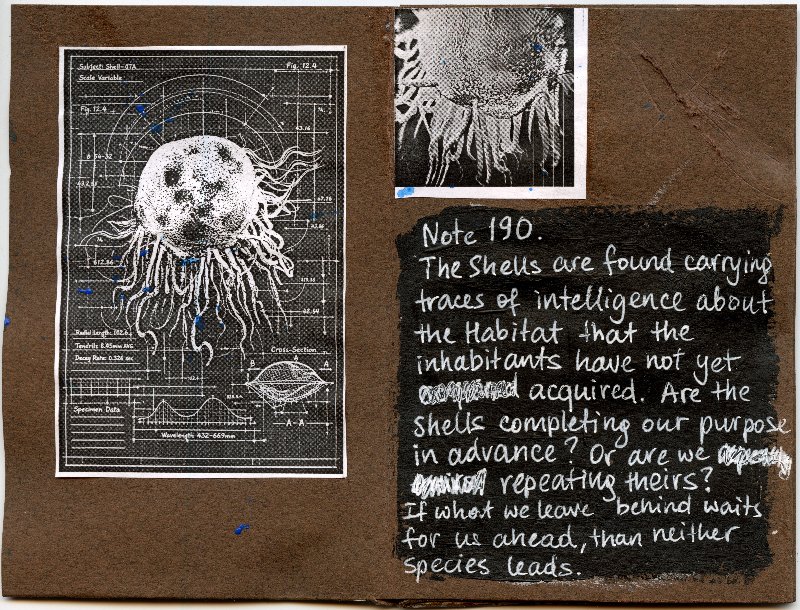 Subject: Shell-07A
Scale Variable
Fig. 12.4
Fig. 12.4
43.16
67.76
612.86
Radial Length: 102.6
Tendrils 8.45mm AVG
Decay Rate: 0.326 sec
Cross-Section
B
A
A
A - A
Specimen Data
Wavelength 432-669mm
Note 190.
The Shells are found carrying
traces of intelligence about
the Habitat that the
inhabitants have not yet
acquired. Are the
Shells completing our purpose
in advance? Or are we
repeating theirs?
If what we leave behind waits
for us ahead, than neither
species leads.